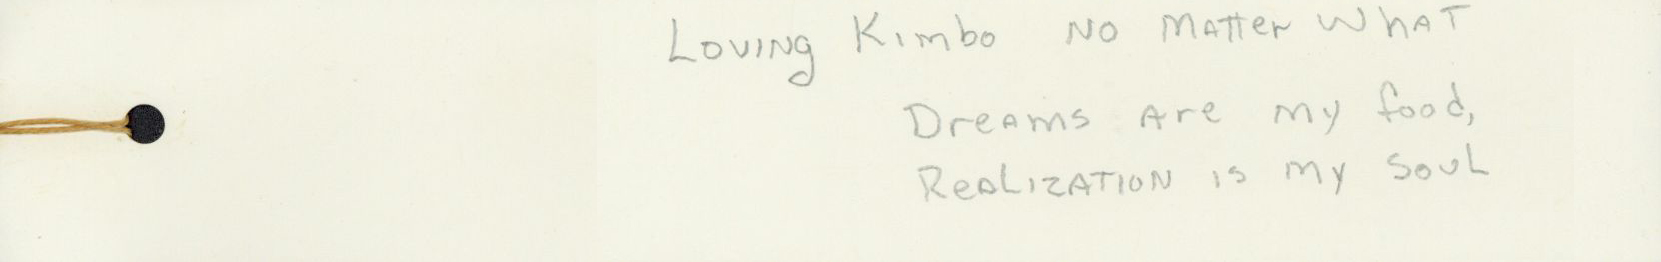 Loving Kimbo No Matter What
Dreams Are my food,
Realization is my soul